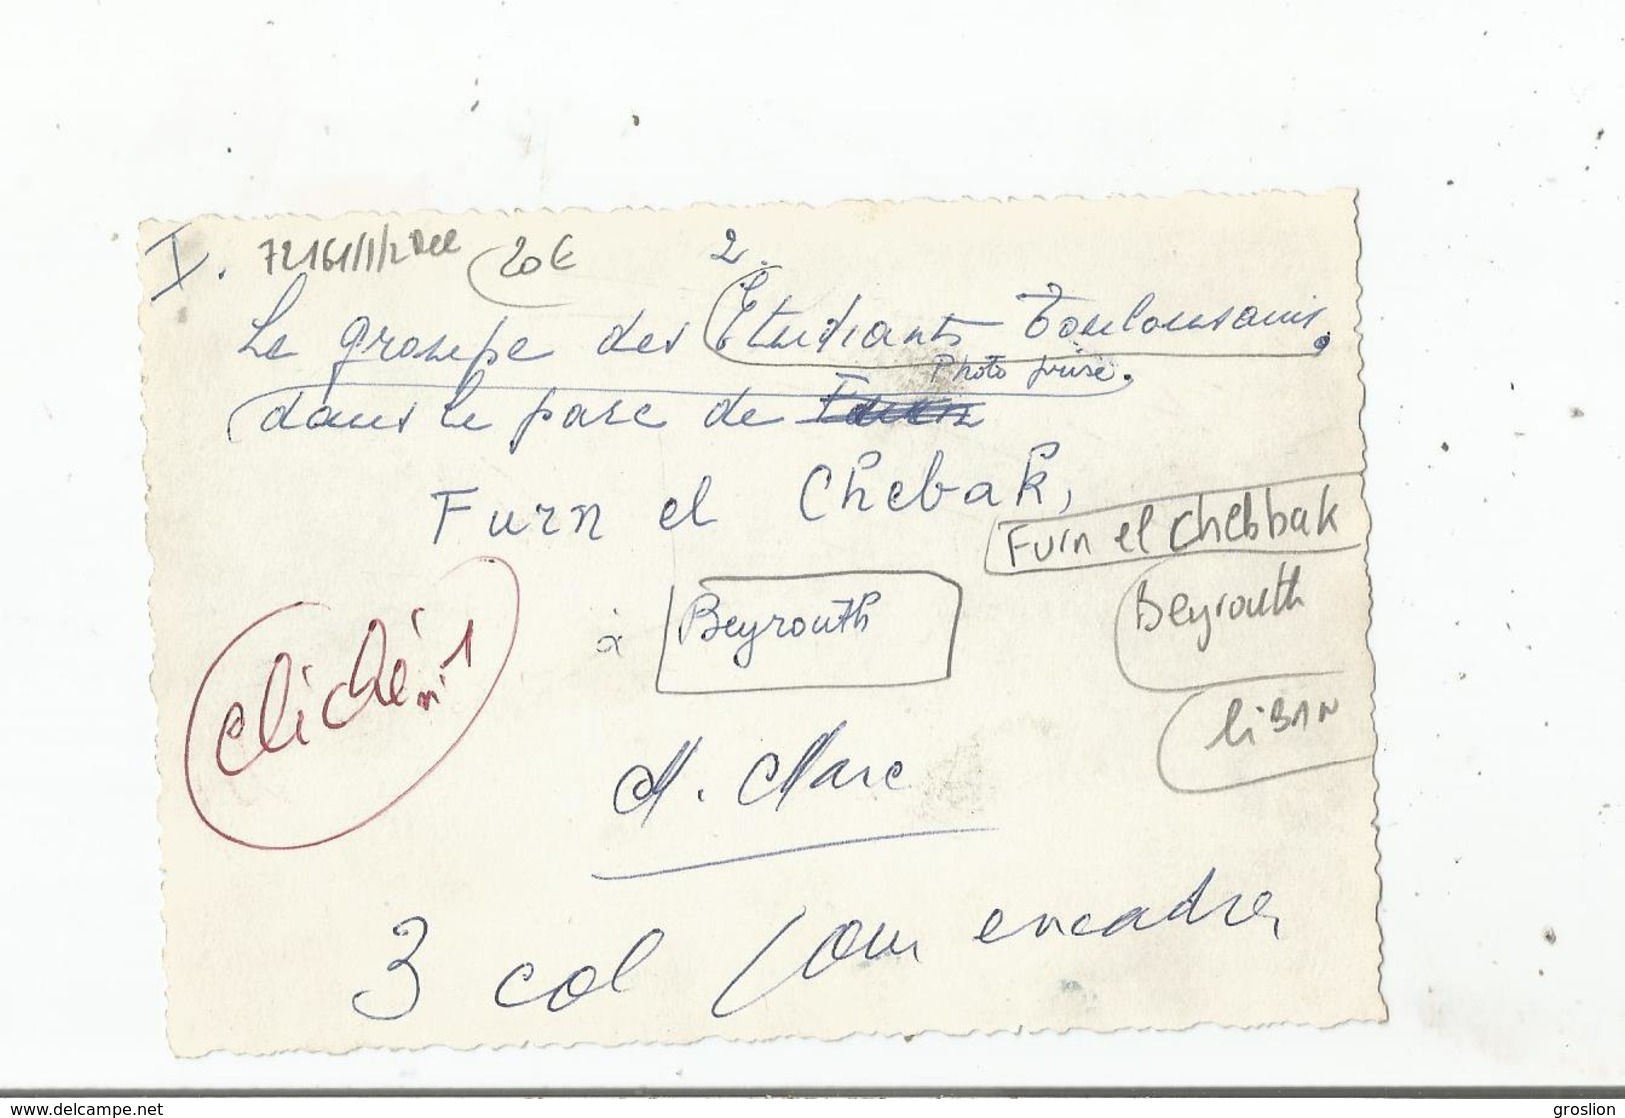 I. 72161/1/2 Dec 20€ 2.
Le groupe des Etudiants Toulousains.
Photo prise.
dans le parc de
Furn el Chebak,
Furn el Chebbak
à Beyrouth
Beyrouth
liBAN
cliché n° 1
M. Marc
3 col pour encadrer
www.delcampe.net
groslion